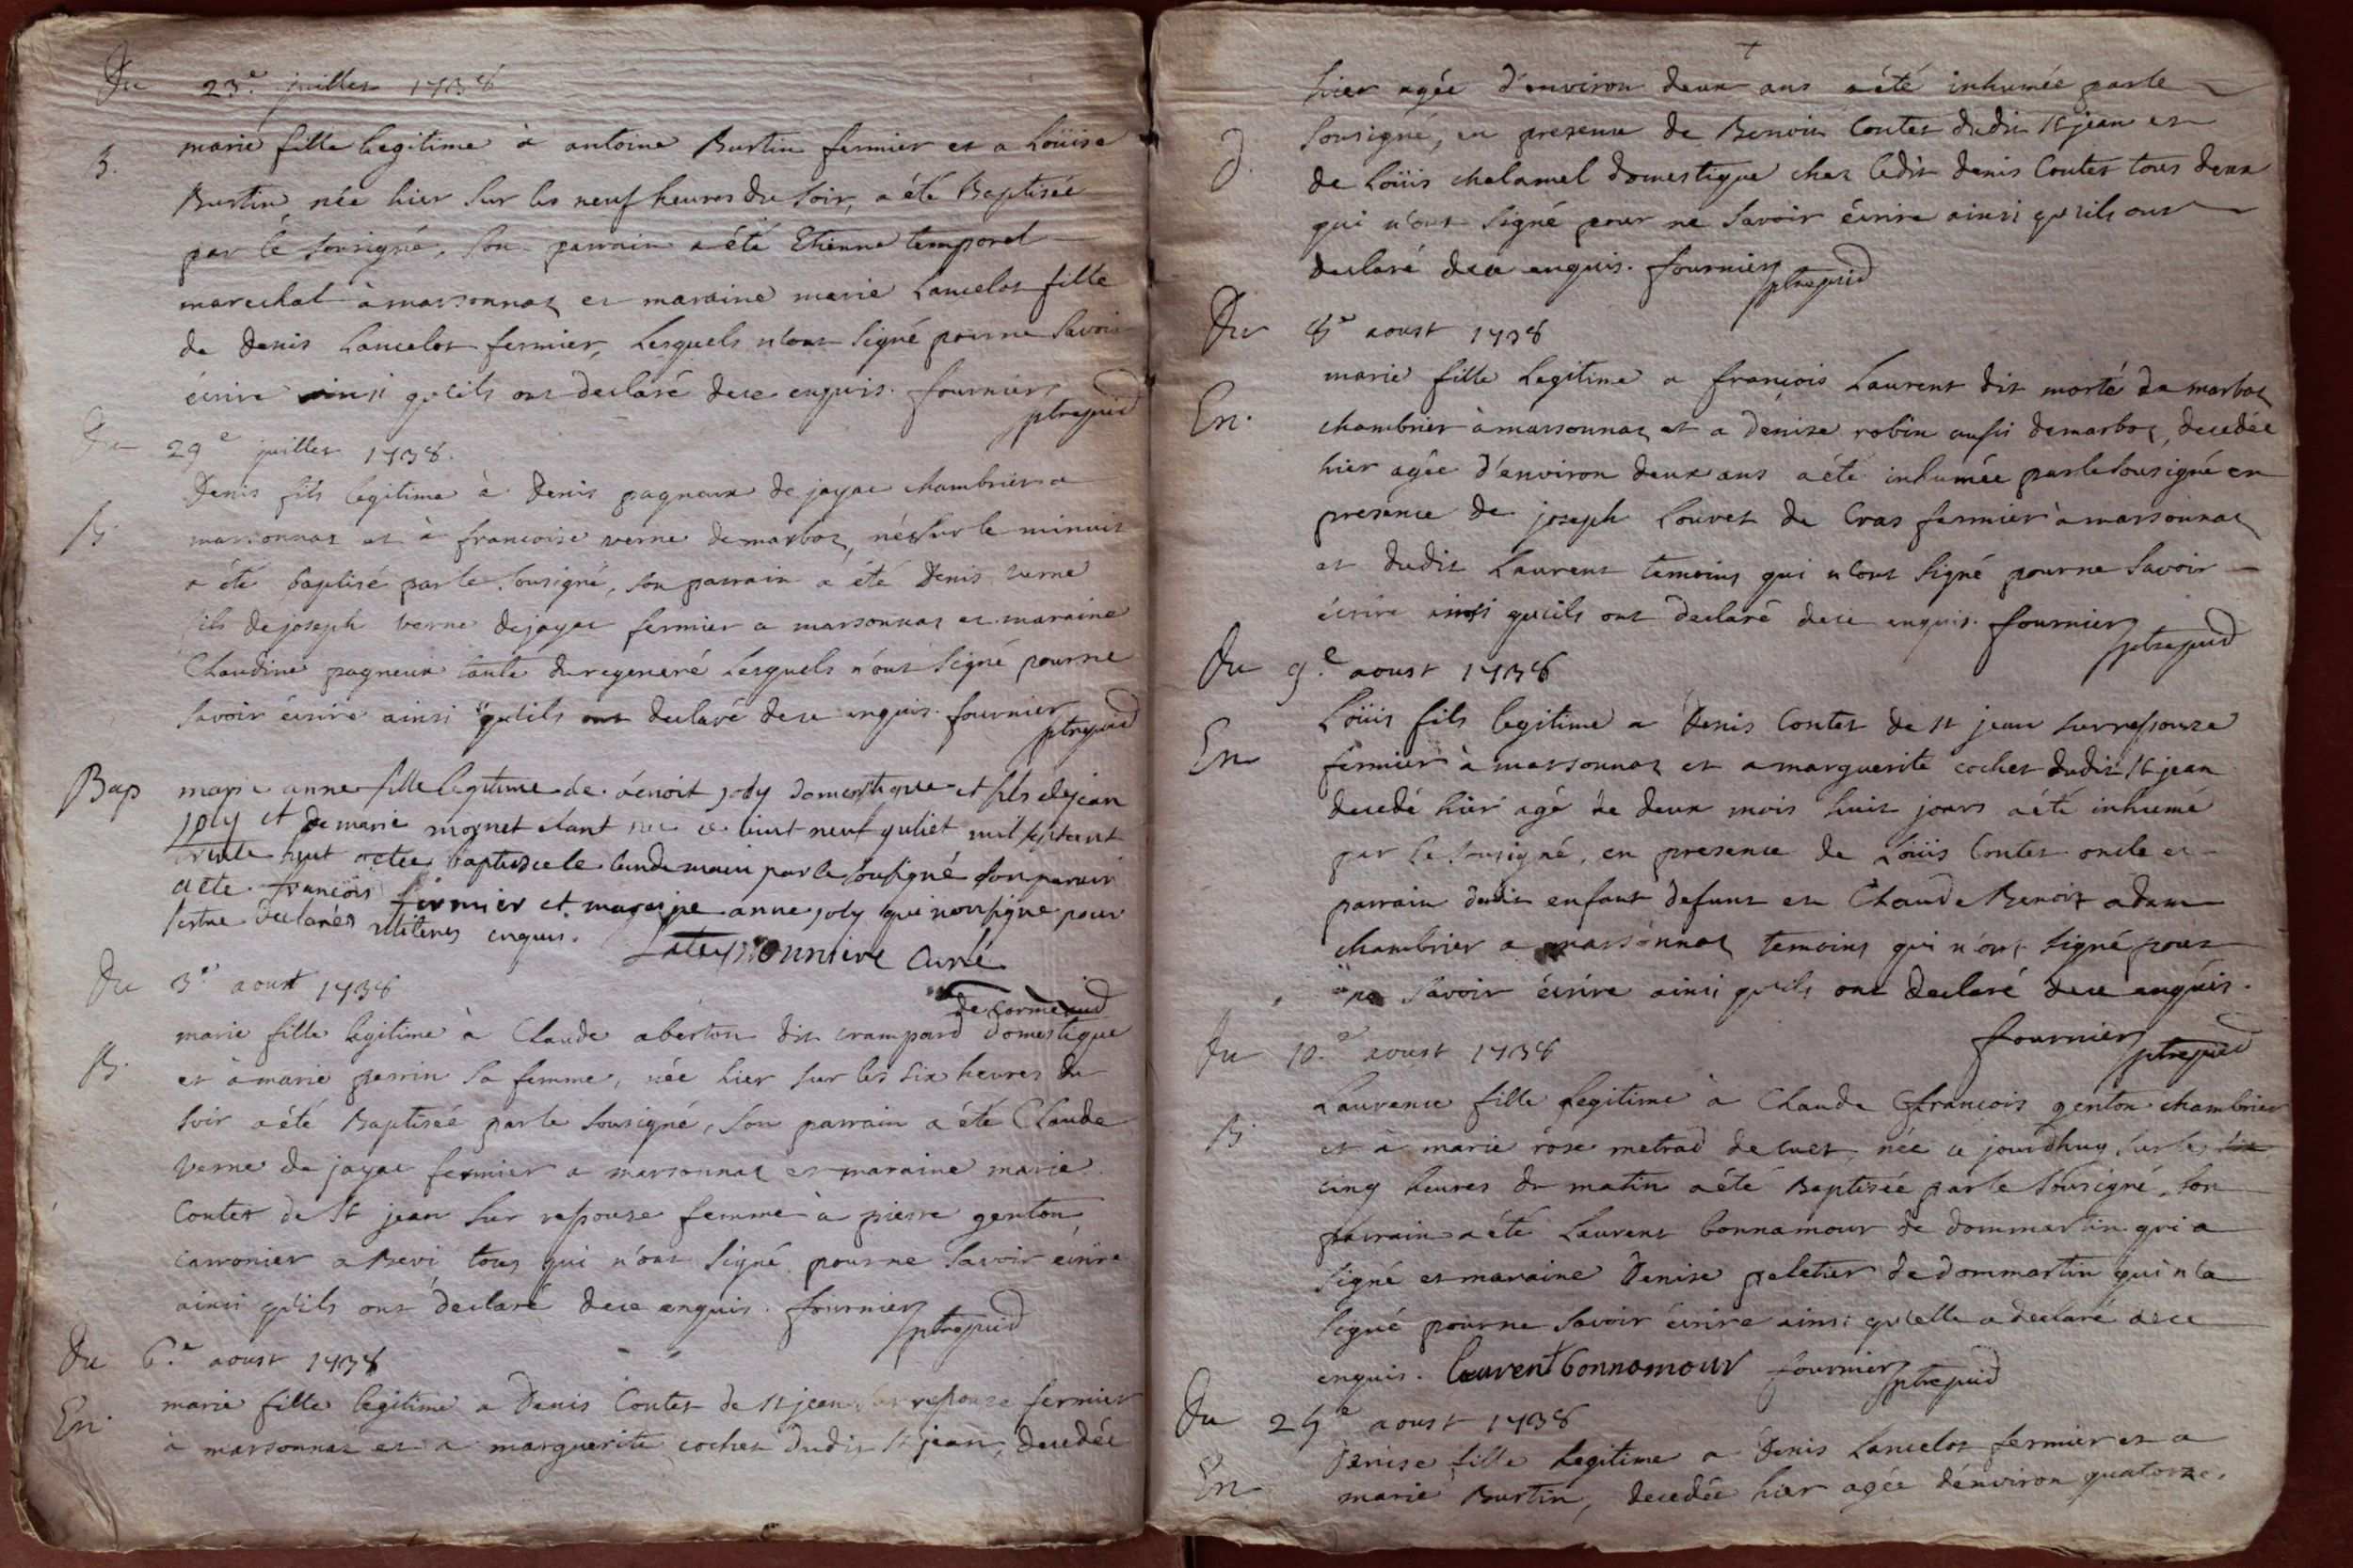 Du 23.e juillet 1738
B. marie fille legitime à antoine Burtin fermier et a Loüise
Burtin née hier sur les neuf heures du soir, a été Baptisée
par le sousigné, son parrain a été Etienne temporel
marechal à marsonnaz et maraine marie Lancelot fille
de Denis Lancelot fermier, Lesquels n'ont signé pour ne savoir
écrire ainsi qu'ils ont declaré de ce enquis. fournier
ptre
Du 29e juillet 1738.
Denis fils legitime à Denis pagneux de jayac chambrier a
B. marsonnaz et à francoise verne de marboz, né sur le minuit
a été baptisé par le sousigné, son parrain a été Denis verne
fils de joseph verne de jayac fermier a marsonnaz et maraine
Claudine pagneux tante du regeneré Lesquels n'ont signé pour ne
savoir écrire ainsi qu'ils ont declaré de ce enquis. fournier
ptre
Bap marie anne fille legitime de benoit joly domestique et fils de jean
joly et de marie mornet etant née ce vint neuf juliet mil sept cent
trente huit a etee baptisee le lendemain par le sousigné son parain
a ete françois fermier et maraine anne joly qui non signe pour
enquis. curé
Du 3e aoust 1738
de cormeaud
marie fille legitime à Claude aberton dit crampard domestique
B. et à marie perrin sa femme, née hier sur les six heures du
soir a été Baptisée par le sousigné, son parrain a été Claude
verne de jayac fermier a marsonnaz et maraine marie
Contet de St jean sur repouse femme à pierre genton
carronier a tous qui n'ont signé pour ne savoir écrire
ainsi qu'ils ont declaré de ce enquis. fournier
ptre
Du 6.e aoust 1738
marie fille legitime a Denis Contet de St jean sur repouse fermier
En. à marsonnaz et a marguerite cochet dudit St jean, decedée
hier agée d'environ deux ans a été inhumée par le
sousigné, en presence de Benoit Contet dudit St jean et
de Loüis chalamel domestique chez ledit denis Contet tous deux
qui n'ont signé pour ne savoir écrire ainsi qu'ils ont
declaré de ce enquis. fournier
ptre
Du 8e aoust 1738
marie fille Legitime a françois Laurent dit morté de marboz
En. chambrier à marsonnaz et a denise robin aussi de marboz, decedée
hier agée d'environ deux ans a été inhumée par le sousigné en
presence de joseph Louvet de Cras fermier à marsonnaz
et dudit Laurent temoins qui n'ont signé pour ne savoir
écrire ainsi qu'ils ont declaré de ce enquis. fournier
ptre
Du 9.e aoust 1738
Loüis fils legitime a Denis Contet de St jean sur repouze
En fermier à marsonnaz et a marguerite cochet dudit St jean
decedé hier agé de deux mois huit jours a été inhumé
par le sousigné, en presence de Loüis Contet oncle et
parrain dudit enfant defunt et Claude Benoit adam
chambrier a marsonnaz temoins qui n'ont signé pour
ne savoir écrire ainsi qu'ils ont declaré de ce enquis.
fournier
ptre
Du 10.e aoust 1738
Laurence fille legitime à Claude francois genton chambrier
B. et à marie rose metrad de cuet, née ce jourdhuy sur les six
cinq heures du matin a été Baptisée par le sousigné, son
parrain a été Laurent bonnamour de dommartin qui a
signé et maraine Denise peletier de dommartin qui n'a
signé pour ne savoir écrire ainsi qu'elle a declaré de ce
enquis. laurent bonnamour fournier
ptre
Du aoust 1738
Denise fille legitime a Denis Lancelot fermier et a
En marie Burtin, decedée hier agée d'environ quatorze